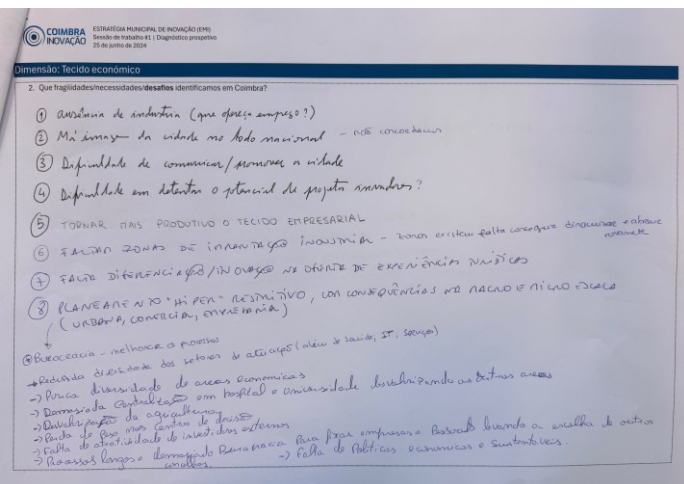 COIMBRA
INOVAÇÃO
ESTRATÉGIA MUNICIPAL DE INOVAÇÃO (EMI)
Sessão de trabalho #1 | Diagnóstico prospetivo
25 de junho de 2024
Dimensão: Tecido económico
2. Que fragilidades/necessidades/desafios identificamos em Coimbra?
① ausência de indústria (que ofereça emprego?)
② Má imagem da cidade no todo nacional - não concordamos
③ Dificuldade de comunicar/promover a cidade
④ Dificuldade em detetar o potencial de projetos inovadores?
⑤ TORNAR MAIS PRODUTIVO O TECIDO EMPRESARIAL
⑥ FALTAM ZONAS DE IMPLANTAÇÃO INDUSTRIAL - zonas existem falta conseguir dinamizar e
⑦ FALTA DIFERENCIAÇÃO/INOVAÇÃO NA OFERTA DE EXPERIÊNCIAS TURÍSTICAS
⑧ PLANEAMENTO "HIPER" RESTRITIVO, COM CONSEQUÊNCIAS NA MACRO E MICRO ESCALA
(URBANA, COMERCIAL, EMPRESARIAL)
Burocracia - melhorar o processo
→ Reduzida diversidade dos setores de atuação (além de saúde, IT, serviços)
-> Pouca diversidade de areas economicas
-> Demasiada Centralização em hospital e Universidade desvalorizando as outras areas
-> Desvalorização da agricultura
-> Perda de peso nos centros de decisão
-> Falta de atratividade de investidores externos
-> Processos longos e demasiada Burocracia para fixar empresas e Pessoas levando a escolha de outros
-> Falta de Politicas economicas e Sustentaveis.